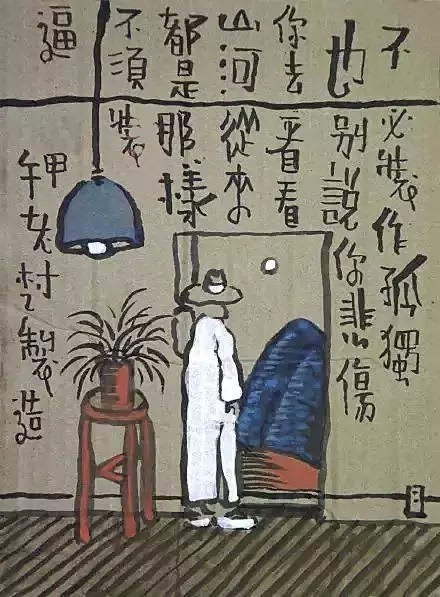 不必裝作孤獨
也别說你悲傷
你去看看
山河從來
都是那樣
不須裝
逼
老村製造